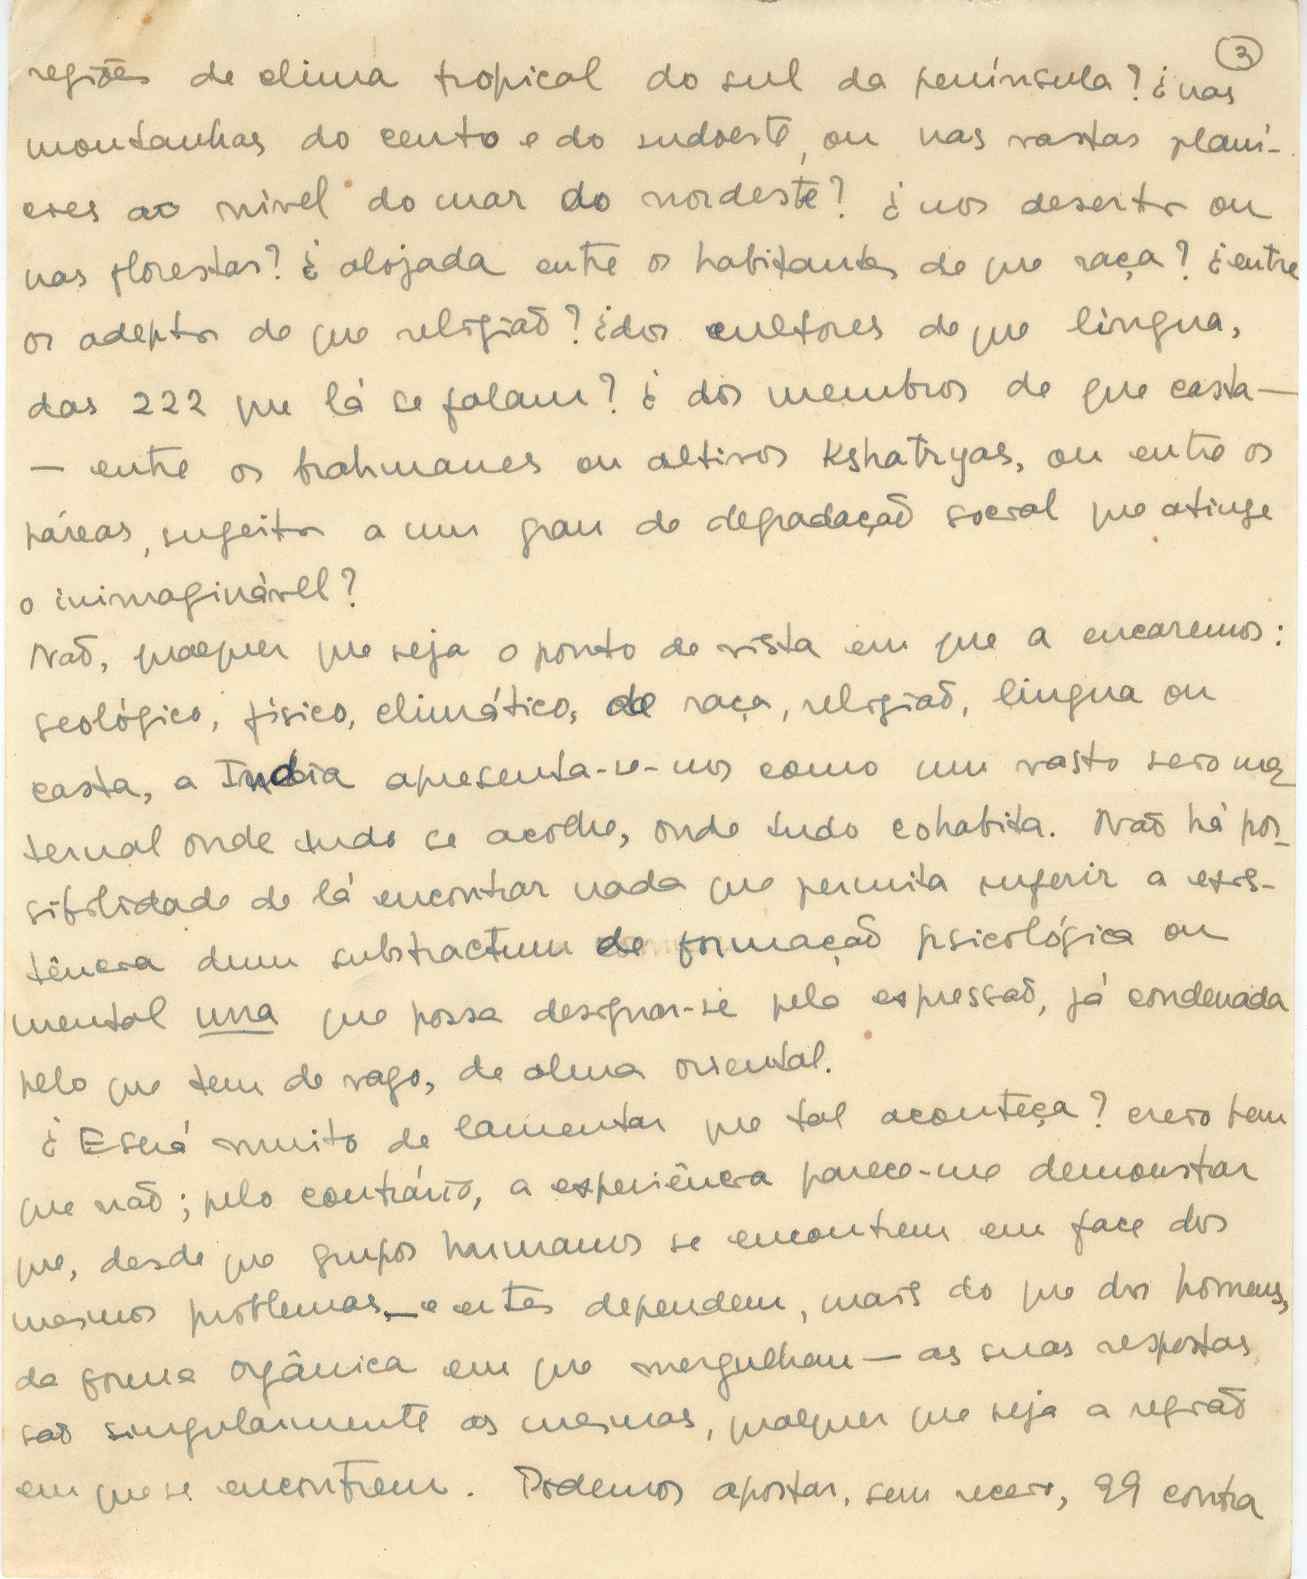 3
regiões de clima tropical do sul da península? ¿nas
montanhas do cento e do sudoeste, ou nas vastas planí-
cies ao nivel do mar do nordeste? ¿nos desertos ou
nas florestas? ¿alojada entre os habitantes de que raça? ¿entre
os adeptos de que religião? ¿dos cultores de que lingua,
das 222 que lá se falam? ¿dos membros de que casta —
— entre os brahmanes ou altivos Kshatryas, ou entre os
páreas, sugeitos a um grau de degradação social que atinge
o inimaginável?
Não, qualquer que seja o ponto de vista em que a encaremos:
geológico, físico, climático, de raça, religião, lingua ou
casta, a India apresenta-se-nos como um vasto seio ma
ternal onde tudo se acolhe, onde tudo cohabita. Não há pos-
sibilidade de lá encontrar nada que permita sugerir a exis-
tência dum substractum de formação psicológica ou
mental una que possa designar-se pela expressão, já condenada
pelo que tem de vago, de alma oriental.
¿Será muito de lamentar que tal aconteça? creio bem
que não; pelo contrário, a experiência parece-me demonstrar
que, desde que grupos humanos se encontrem em face dos
mesmos problemas — e estes dependem, mais do que dos homens,
da forma orgânica em que mergulham — as suas respostas
são singularmente as mesmas, qualquer que seja a região
em que se encontrem. Podemos apostar, sem receio, 99 contra